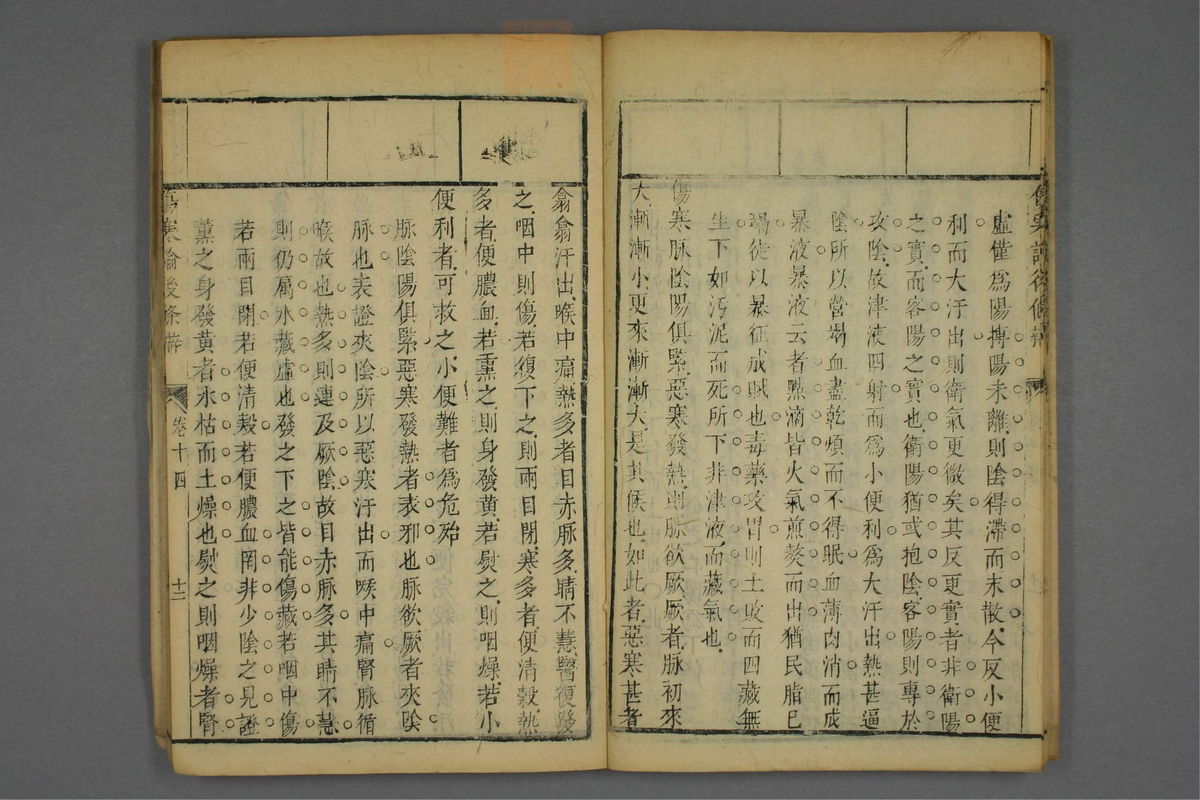 傷寒論後條辨
虛僅爲陽搏陽未離則陰得滯而未散今反小便
利而大汗出則衛氣更微矣其反更實者非衛陽
之實而客陽之實也衛陽猶或抱陰客陽則專於
攻陰故津液四射而爲小便利爲大汗出熱甚逼
陰所以營竭血盡乾煩而不得眠血薄肉消而成
暴液暴液云者點滴皆火氣煎熬而出猶民脂已
竭徒以暴征成賦也毒藥攻胃則土敗而四藏無
生下如汚泥而死所下非津液而藏氣也
傷寒脉陰陽俱緊惡寒發熱則脉欲厥厥者脉初來
大漸漸小更來漸漸大是其候也如此者惡寒甚者
翕翕汗出喉中痛熱多者目赤脉多睛不慧醫復發
之咽中則傷若復下之則兩目閉寒多者便清穀熱
多者便膿血若熏之則身發黃若熨之則咽燥若小
便利者可救之小便難者爲危殆
脉陰陽俱緊惡寒發熱者表邪也脉欲厥者夾陰
脉也表證夾陰所以惡寒汗出而喉中痛腎脉循
喉故也熱多則連及厥陰故目赤脉多其睛不慧
則仍屬水藏虛也發之下之皆能傷藏若咽中傷
若兩目閉若便清穀若便膿血罔非少陰之見證
薰之身發黃者水枯而土燥也熨之則咽燥者腎
傷寒論後條辨
卷十四
十二